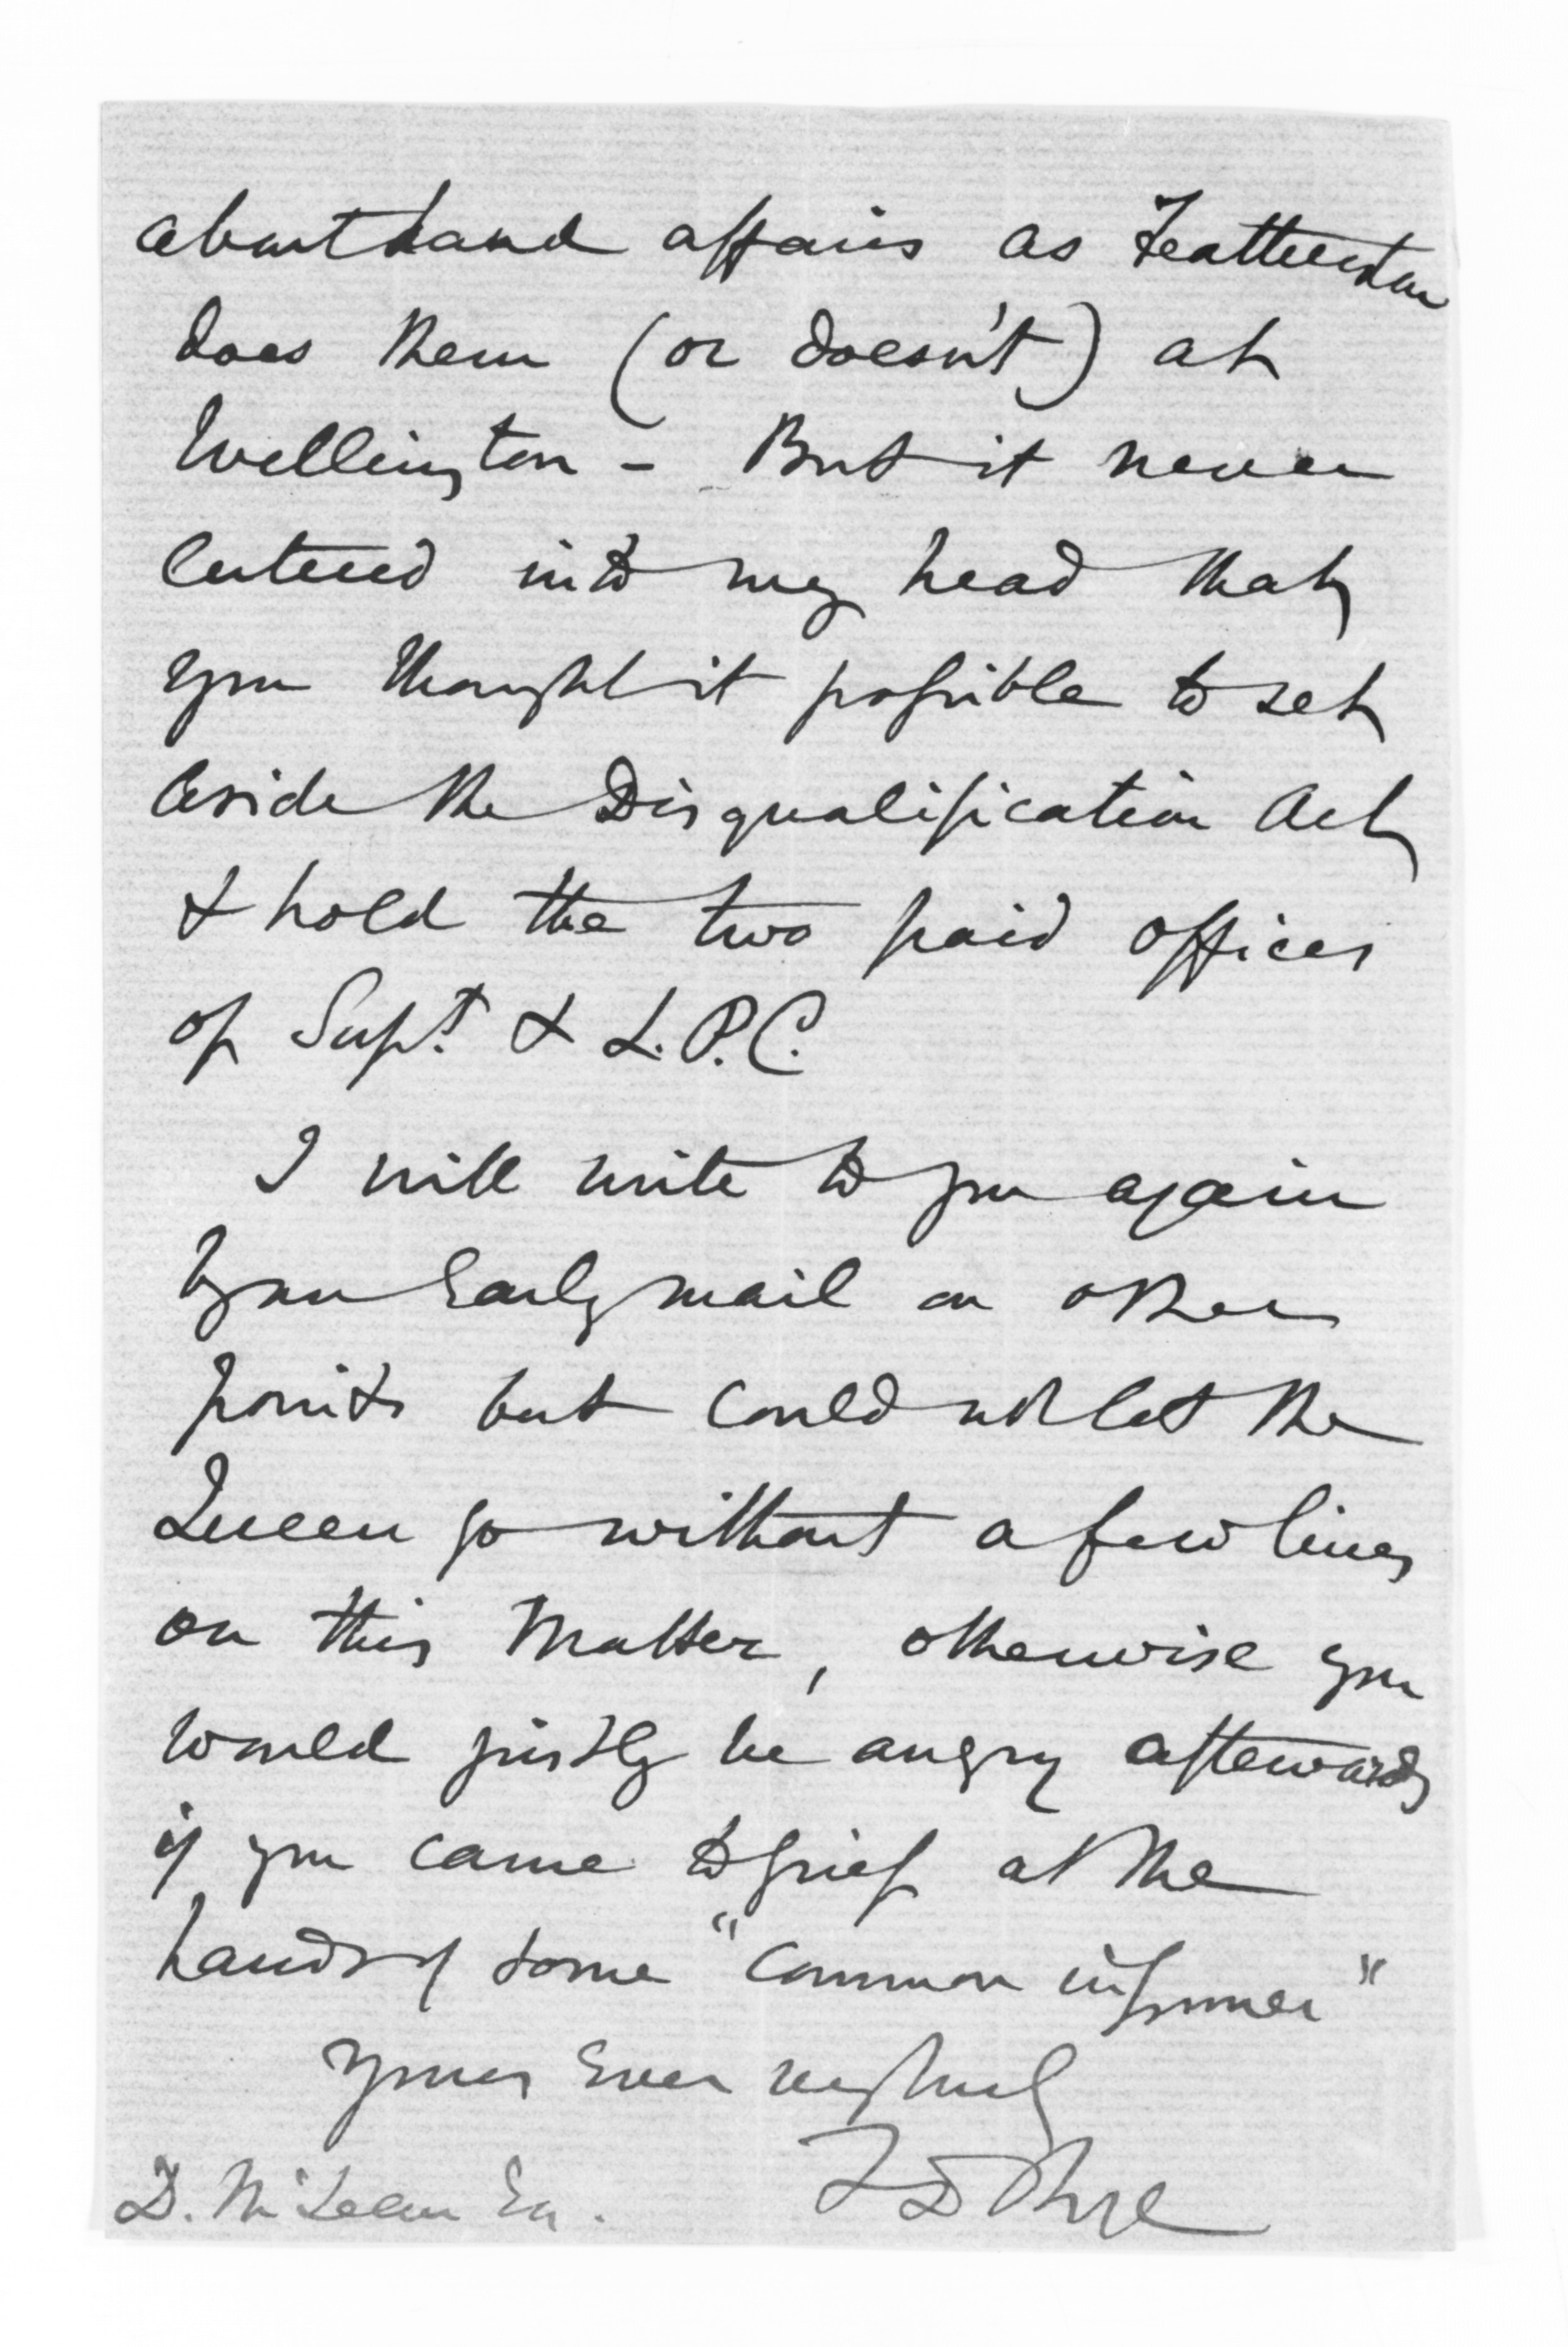 about land affairs as Featherston
does them (or doesn't) at
Wellington - But it never
entered into my head that
you thought it possible to set
aside the Disqualification Act
& hold the two paid offices
of Supt. & L.P.C.
I will write to you again
by an early mail on other
points but could not let the
Queen go without a few lines
on this matter, otherwise you
would justly be angry afterwards
if you came to grief at the
hands of some "common informer"
Yours ever
D. McLean Esq.